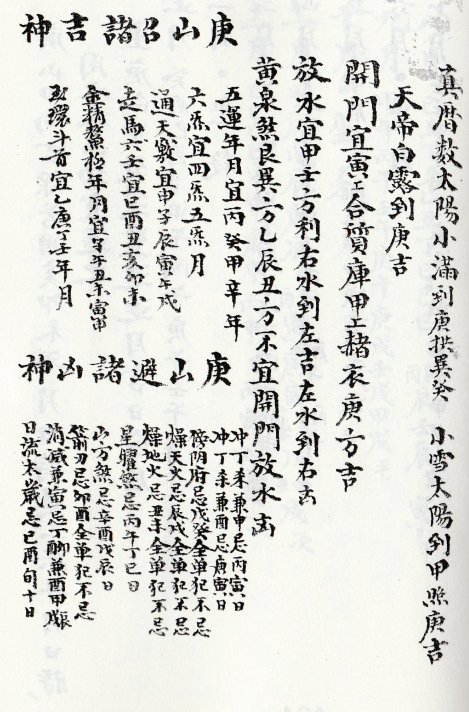 真暦数太陽小滿到庚拱巽癸　小雪太陽到甲照庚吉
天帝白露到庚吉
開門宜寅上合質庫甲上赭衣庚方吉
放水宜甲壬二方利右水到左吉左水到右凶
黄泉煞艮巽二方乙辰丑二方不宜開門放水凶
庚山召諸吉神
五運年月宜丙癸甲辛年
六炁宜四炁五炁月
通天竅宜申子辰寅午戌
走馬六壬宜巳酉丑亥卯未
金精鰲極年月宜子午丑未寅申
斗首宜乙庚丁壬年月
庚山避諸凶神
冲丁未兼申忌丙寅日
冲丁未兼酉忌庚寅日
傍阴府忌戊癸全单犯不忌
燥天火忌辰戌全单犯不忌
燥地火忌丑未全单犯不忌
星曜煞忌丙午丁巳日
山方煞忌辛酉戊辰日
箭刃忌卯酉全单犯不忌
消滅兼寅忌丁卯兼酉甲辰
日流太歲忌己酉旬十日